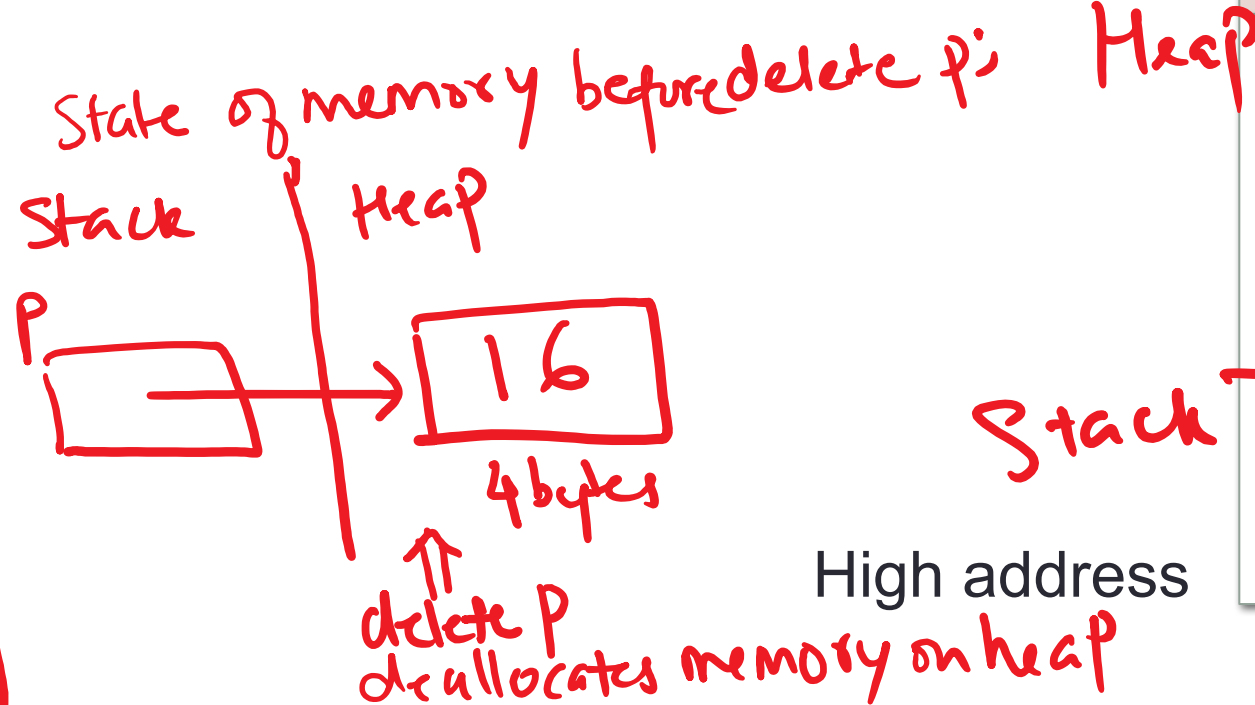 State of memory before delete p;
Heap
Stack
Heap
P
16
4 bytes
Stack
High address
delete P
deallocates memory on heap